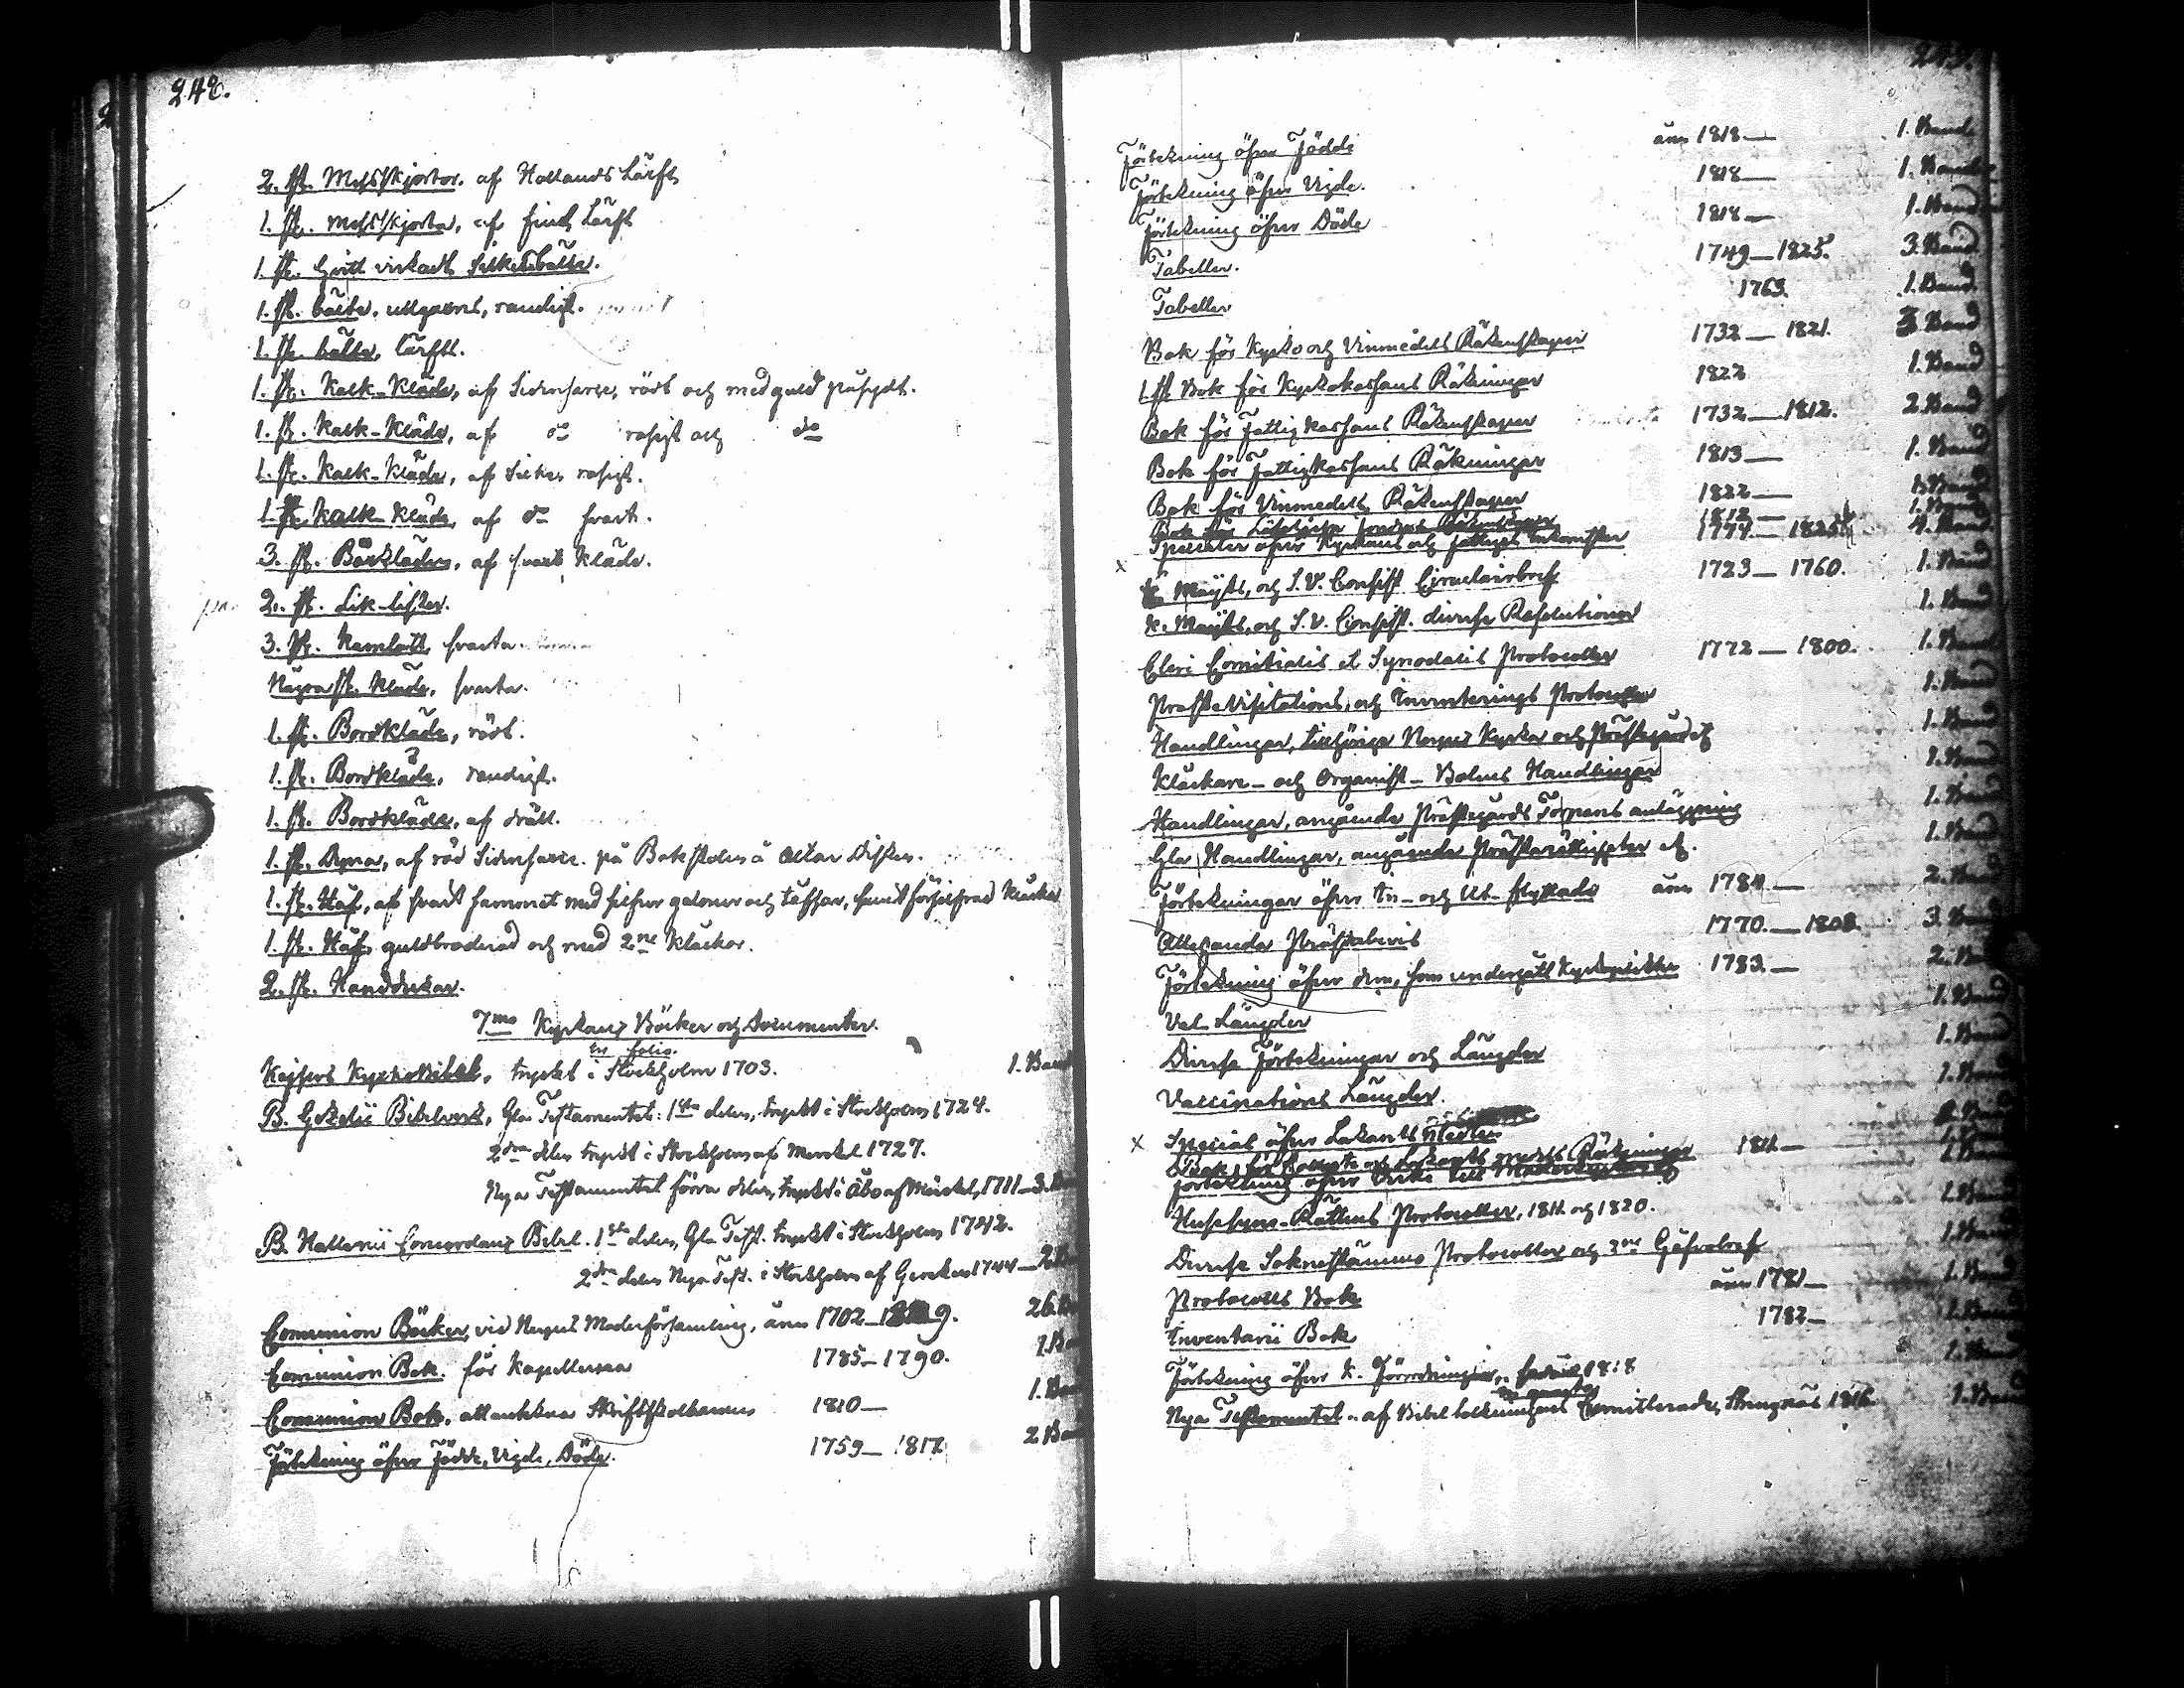 248.
2. st. Messskjortor. af Hollands Lärft
1. st. Messskjorta, af fint Lärft
1. st. hvitt virkadt Silkesbälte.
1. st. bälte, ullgarns, randigt.
1. st. bälte, lärfts.
1. st. Kalk-Kläde, af Sidensarge, rödt och med guld påsydt.
1. st. Kalk-Kläde, af do rosigt och do
1. st. Kalk-Kläde, af Silke, rosigt.
1. st. Kalk-Kläde, af do svart.
3. st. Bårkläder, af svart Kläde.
2. st. Lik-kistor.
3. st. Kamlott, svarta.
Några st. Kläde, svarta.
1. st. Bordkläde, rödt.
1. st. Bordkläde, randigt.
1. st. Bordkläde, af dräll.
1. st. Dyna, af röd Sidensarge. på Bokstolen å Altar Disken.
1. st. Håf, af svart sammet med silfver galoner och tofsar, samt försilfrad Klocka
1. st. Håf, guldbroderad och med 2ne Klockor.
2. st. Handdukar.
7mo Kyrkans Böcker och Documenter.
in folio.
Kejsers Kyrko Bibel, tryckt i Stockholm 1703. 1. Band
B. Gezelii Bibelverk, Gla Testamentet: 1sta delen, tryckt i Stockholm 1724.
2dra delen tryckt i Stockholm af Merckel 1727.
Nya Testamentet förra delen, tryckt i Åbo af Merckel, 1711 — 3. Band
B. Hallenii Concordanz Bibel. 1sta delen, Gla Test. tryckt i Stockholm 1742.
2dra delen Nya Test. i Stockholm af Gercken 1744 — 2. Band
Communion Böcker, vid Moderförsamling, ifrån 1702 — 26. Band
Communion Bok. för Kapellerna 1785 — 1790. 1. Band
Communion Bok, att anteckna Skriftskolbarnen 1810 — 1. Band
Förtekning öfver Födde, Vigde, Döde. 1759 — 1817. 2 Band
Förtekning öfver Födde ifrån 1818 — 1. Band
Förtekning öfver Vigde. 1818 — 1. Band
Förtekning öfver Döde 1818 — 1. Band
Tabeller. 1749 — 1825. 3. Band
Tabeller 1763. 1. Band
Bok för Kyrko och Vinmedels Räkenskaper 1732 — 1821. Band
1. st Bok för Kyrkokassans Räkningar 1822 1. Band
Bok för Fattigkassans Räkenskaper 1732 — 1812. 2. Band
Bok för Fattigkassans Räkningar 1813 — 1. Band
Bok för Vinmedels Räkenskaper 1822 — 1. Band
Bok för Räkenskaper 1812 — 1. Band
Specialer öfver Kyrkans och fattiges inkomster 1774 — 1825 4. Band
x K. Maijts, och S.V. Consist. Circulairbref 1723 — 1760. 1. Band
K. Maijts, och S.V. Consist. diverse Resolutioner 1. Band
Cleri Comitialis et Synodalis Protocoller 1772 — 1800. 1. Band
Prosta Visitations, och Inventerings Protocoller 1. Band
Handlingar, tillhöriga Kyrka och Prästegård 1. Band
Klockare- och Organist- Bolens Handlingar 1. Band
Handlingar, angående Prästegårds Torpens anläggning 1. Band
Gla Handlingar, angående Prästerättigheter 1. Band
Förtekningar öfver In- och Ut- flyttade ifrån 1784 — 2. Band
Allehanda Prästabevis 1770. — 1808. 3. Band
Förtekning öfver dem, som undergått Kyrkoplikt 1783 — 2. Band
Val- Längder 1. Band
Diverse Förtekningar och Längder 1. Band
Vaccinations Längder. 1. Band
x Special öfver Lakants
Bok för Collecte och Räkningar 1811 — 1. Band
Förtekning öfver till Moderkyrkan 1. Band
Hussyns-Rättens Protocoller, 1811 och 1820. 1. Band
Diverse Sokнеstämmo Protocoller och 2ne Gåfvobref 1. Band
Protocolls Bok ifrån 1781 — 1. Band
Inventarii Bok 1782 — 1. Band
Förtekning öfver K. Förordningar, 1818 1. Band
in quarto
Nya Testamentet, af Bibel Committerade, Strengnäs 1816 1. Band